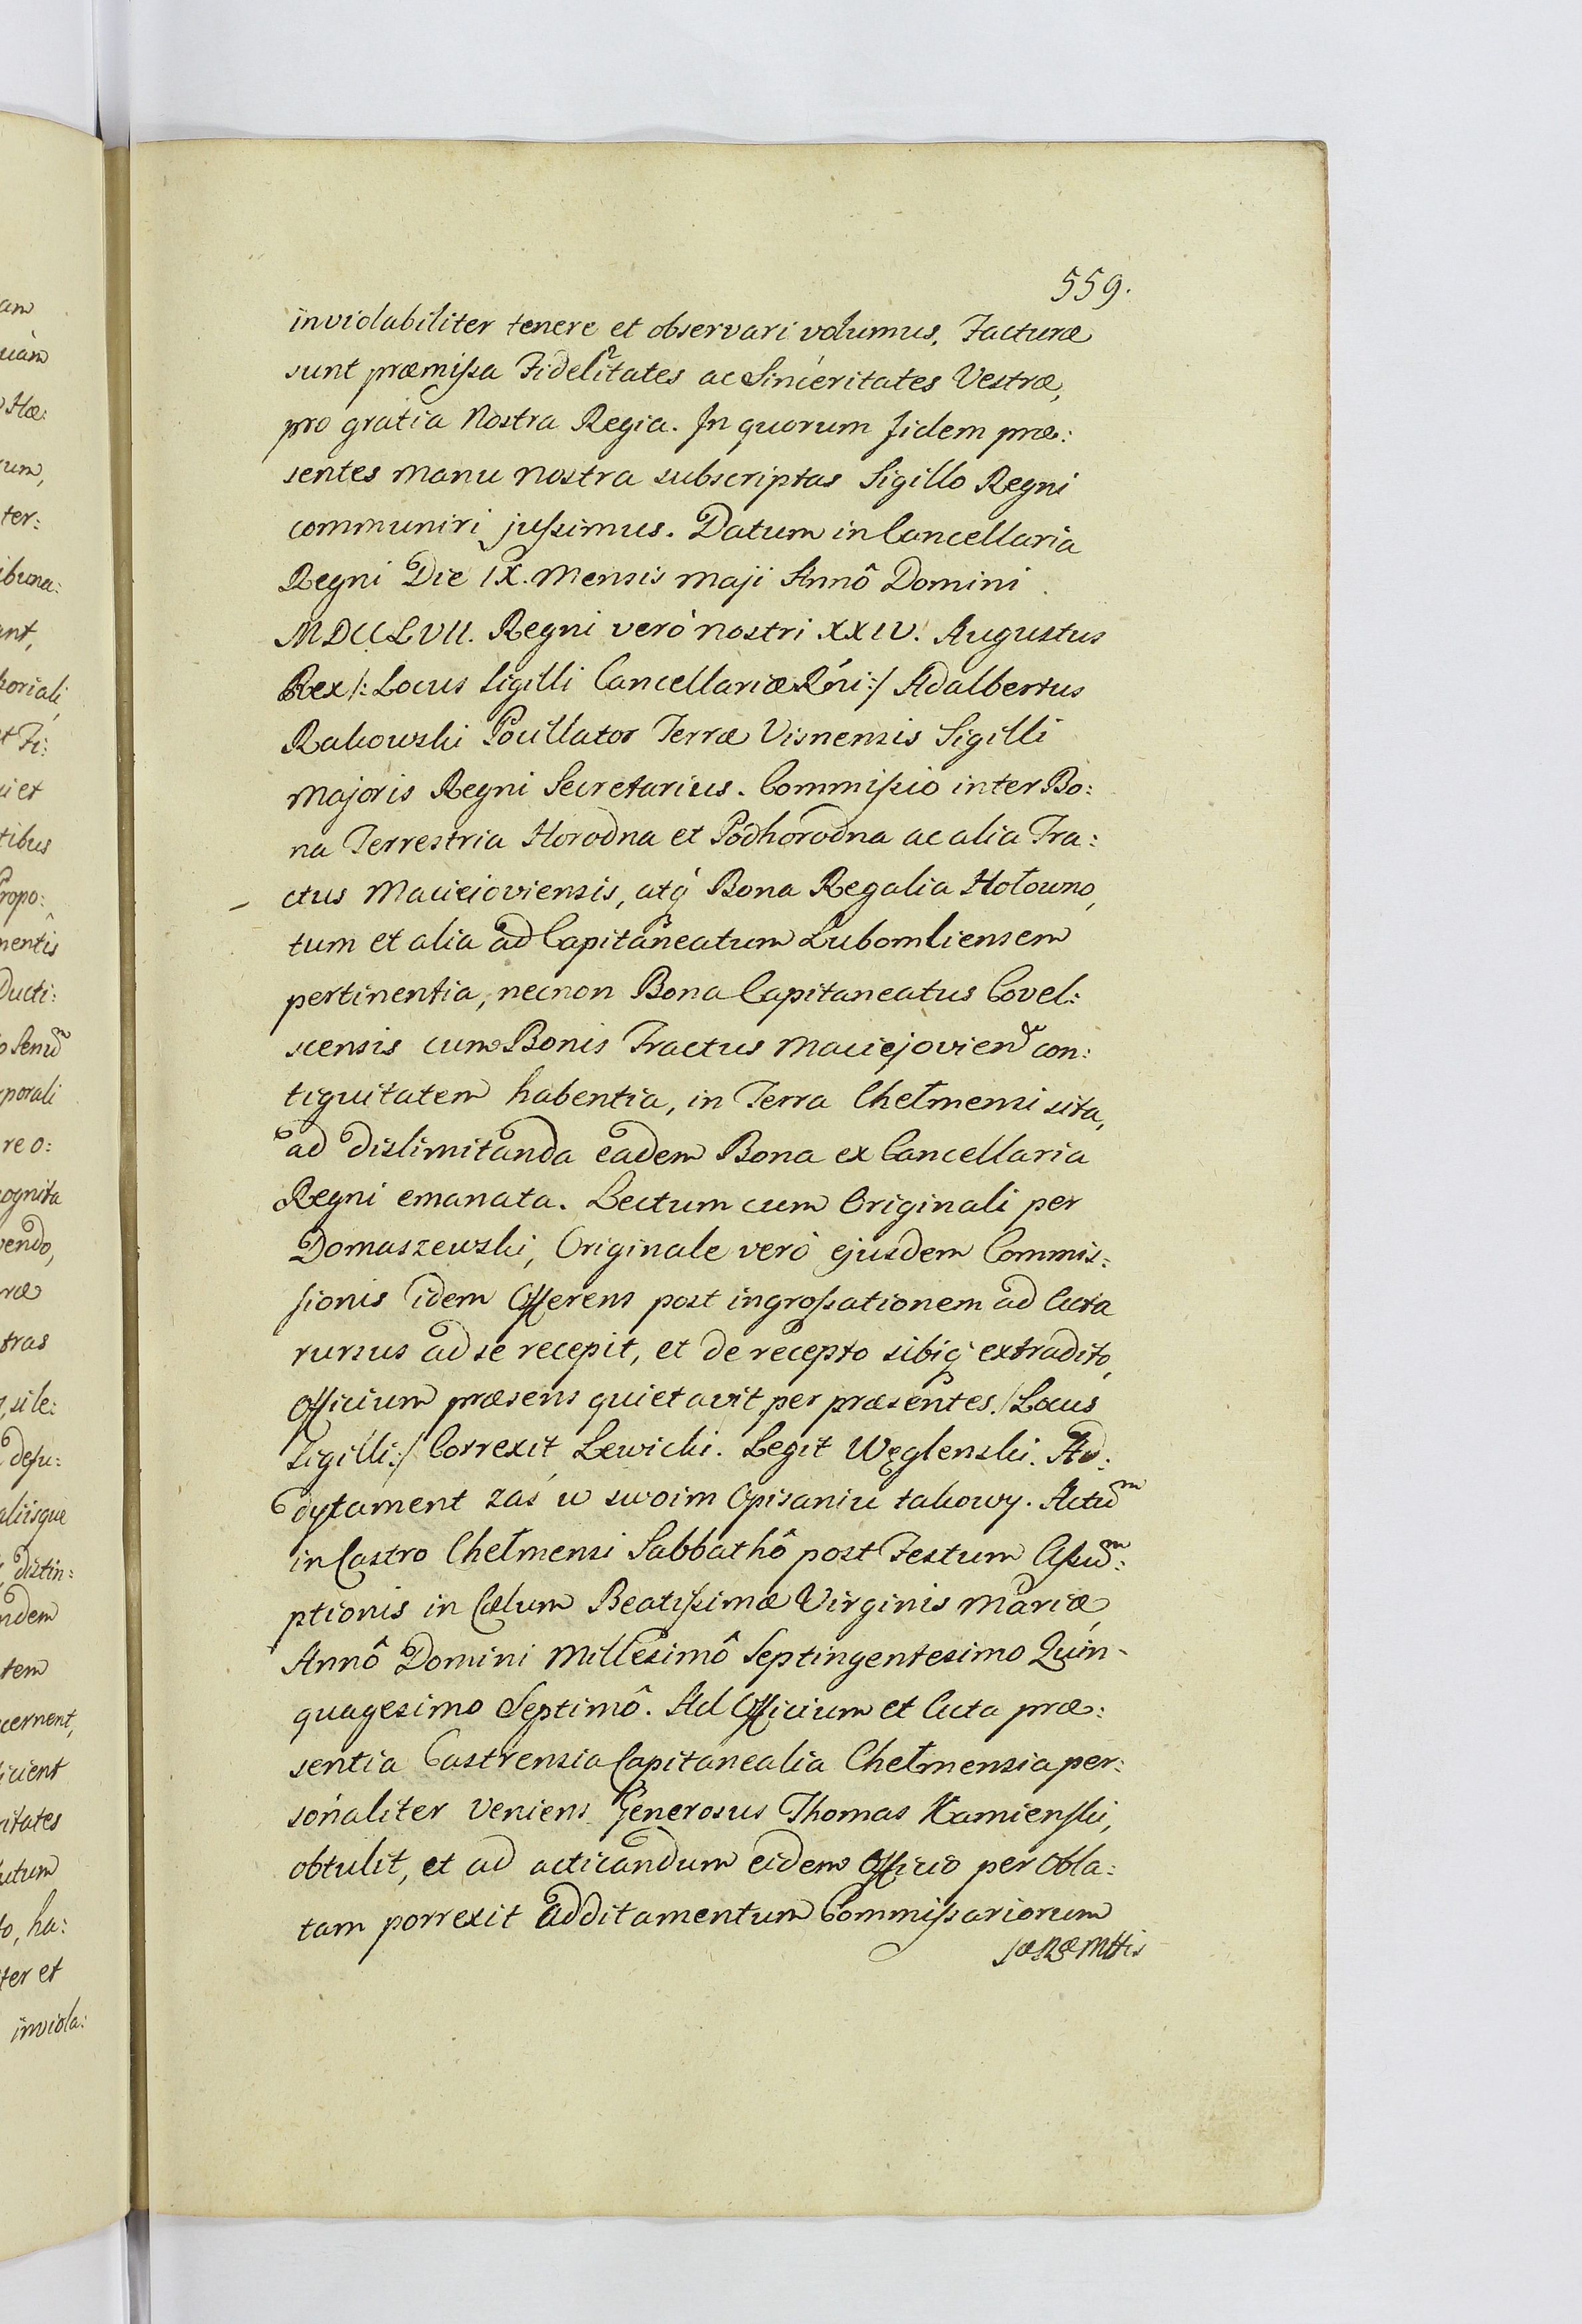 559.
inviolabiliter tenere et observari volumus. Facturæ
sunt præmissa Fidelitates ac Sinceritates Vestræ,
pro gratia Nostra Regia. In quorum fidem præ:
sentes manu nostra subscriptas Sigillo Regni
communiri jussimus. Datum in Cancellaria
Regni Die IX. Mensis Maji Annô Domini
MDCCLVII. Regni verò nostri XXIV. Augustus
Rex /: Locus Sigilli Cancellariæ Rńi :/ Adalbertus
Rakowski Pocillator Terræ Visnensis Sigilli
Majoris Regni Secretarius. Commissio inter Bo:
na Terrestria Horodna et Podhorodna ac alia Tra:
ctus Macieioviensis, atq́ Bona Regalia Hołowno,
tum et alia ad Capitaneatum Lubomliensem
pertinentia, necnon Bona Capitaneatus Covel:
scensis cum Bonis Tractus Maciejovien̄ con:
tiguitatem habentia, in Terra Chełmensi sita,
ad dislimitanda eadem Bona ex Cancellaria
Regni emanata. Lectum cum Originali per
Domaszewski, Originale verò ejusdem Commis:
sionis idem Offerens post ingrossationem ad Acta
rursus ad se recepit, et de recepto sibiq́ extradito,
Officium præsens quietavit per præsentes. /Locus
Sigilli:/ Correxit Lewicki. Legit Węglenski. Ad:
dytament zaś w swoim Opisaniu takowy. Actũm
in Castro Chełmensi Sabbathô post Festum Assũm:
ptionis in Cælum Beatissimæ Virginis Mariæ,
Annô Domini Millesimô Septingentesimo Quin-
quagesimo Septimô. Ad Officium et Acta præ:
sentia Castrensia Capitanealia Chełmensia per:
sonaliter veniens Generosus Thomas Kamienski,
obtulit, et ad acticandum eidem Officio per Obla:
tam porrexit additamentum Commissariorum
inviola: